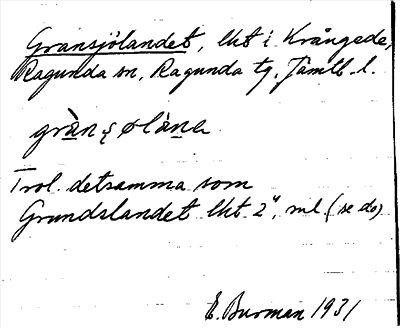 Gransjölandet, lkt i Krångede,
Ragunda sn, Ragunda tg, Jämtl. l.
Trol. detsamma som
Grundslandet lkt 2", ml. (se do)
E. Burman 1931